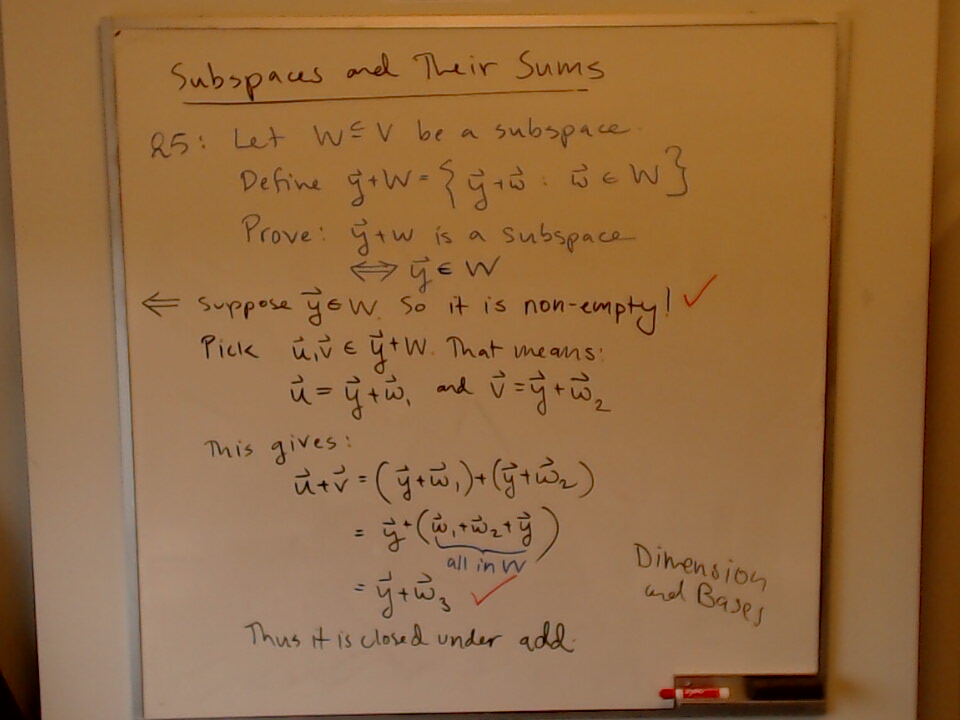 Subspaces and Their Sums
25: Let W ⊆ V be a subspace.
Define y⃗+W = { y⃗+w⃗ : w⃗ ∈ W }
Prove: y⃗+W is a subspace
⟺ y⃗ ∈ W
⟸ Suppose y⃗ ∈ W. So it is non-empty! ✓
Pick u⃗,v⃗ ∈ y⃗+W. That means:
u⃗ = y⃗+w⃗₁ and v⃗ = y⃗+w⃗₂
This gives:
u⃗+v⃗ = (y⃗+w⃗₁)+(y⃗+w⃗₂)
= y⃗+(w⃗₁+w⃗₂+y⃗)
all in W
= y⃗+w⃗₃ ✓
Thus it is closed under add.
Dimension
and Bases